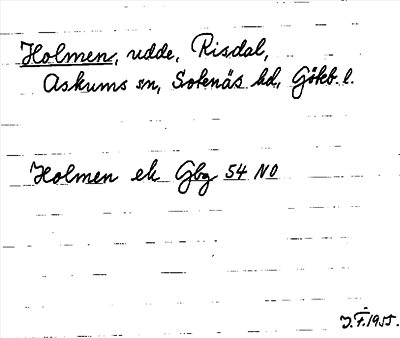 Holmen, udde, Risdal,
Askums sn, Sotenäs hd, Gökb. l.
Holmen ek Gbg 54 NO
J.F.1955.